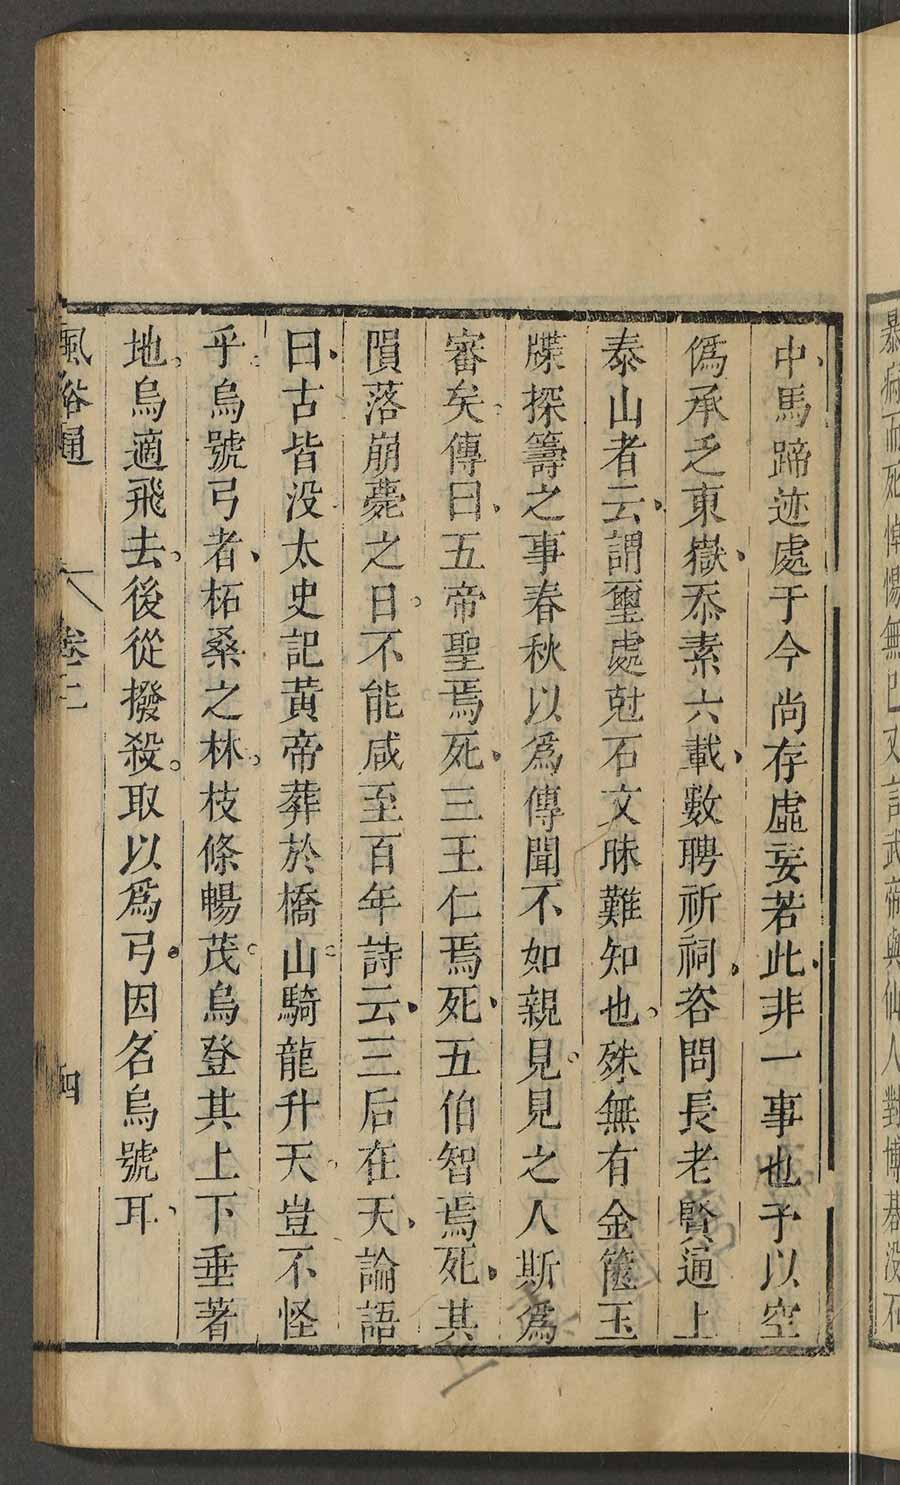 中馬蹄迹處于今尚存虛妄若此非一事也予以空
偽承乏東嶽忝素六載數聘祈祠咨問長老賢通上
泰山者云謂璽處尅石文昧難知也殊無有金篋玉
牒探籌之事春秋以爲傳聞不如親見見之人斯爲
審矣傳曰五帝聖焉死三王仁焉死五伯智焉死其
隕落崩薨之日不能咸至百年詩云三后在天論語
曰古皆没太史記黃帝葬於橋山騎龍升天豈不怪
乎烏號弓者柘桑之林枝條暢茂烏登其上下垂著
地烏適飛去後從撥殺取以爲弓因名烏號耳
風俗通 卷二 四
暴病而死悼惕無已又言武帝與仙人對博碁没石